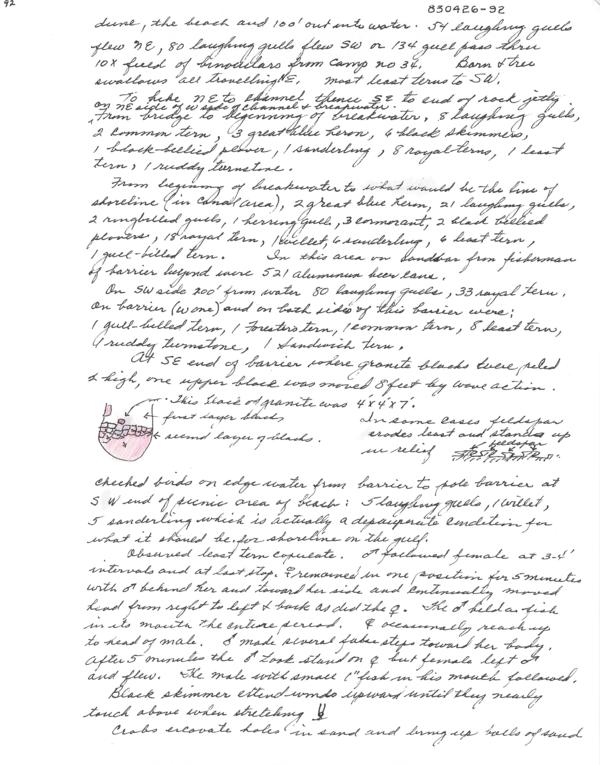 92
830426-92
dune, the beach and 100' out into water. 54 laughing gulls
flew NE, 80 laughing gulls flew SW or 134 gull pass thru
10X field of binoculars from Camp no 34. Barn & tree
swallows all travelling NE. Most least terns to SW.
To hike NE to channel thence SE to end of rock jetty
on NE side of W side of channel & breakwater.
From bridge to beginning of breakwater, 8 laughing gulls,
2 common tern, 3 great blue heron, 6 black skimmers,
1 black-bellied plover, 1 sanderling, 8 royal terns, 1 least
tern, 1 ruddy turnstone.
From beginning of breakwater to what would be the line of
shoreline (in canal area), 2 great blue heron, 21 laughing gulls,
2 ringbilled gulls, 1 herring gull, 3 cormorant, 2 black bellied
plovers, 18 royal tern, 1 willet, 6 sanderling, 6 least tern,
1 gull-billed tern. In this area on sandbar from fisherman
of barrier beyond were 521 aluminum beer cans.
On SW side 200' from water 80 laughing gulls, 33 royal tern.
On barrier (W one) and on both sides of this barrier were:
1 gull-billed tern, 1 Foresters tern, 1 common tern, 8 least tern,
4 ruddy turnstone, 1 Sandwich tern.
At SE end of barrier where granite blocks were piled
2 high, one upper block was moved 8 feet by wave action.
This block of granite was 4'x4'x7'.
first layer blocks
second layer of blocks.
In some cases feldspar
erodes least and stands up
in relief
feldspar
Checked birds on edge water from barrier to pole barrier at
SW end of picnic area of beach: 5 laughing gulls, 1 willet,
5 sanderling which is actually a depauperate condition for
what it should be for shoreline on the gulf.
Observed least tern copulate. ♂ followed female at 3-4'
intervals and at last stop. ♀ remained in one position for 5 minutes
with ♂ behind her and toward her side and continually moved
head from right to left & back as did the ♀. The ♂ held a fish
in its mouth the entire period. ♀ occasionally reach up
to head of male. ♂ made several false steps toward her body.
After 5 minutes the ♂ took stand on ♀ but female left ♂
and flew. The male with small 1" fish in his mouth followed.
Black skimmer extend wings upward until they nearly
touch above when stretching
Crabs excavate holes in sand and bring up balls of sand